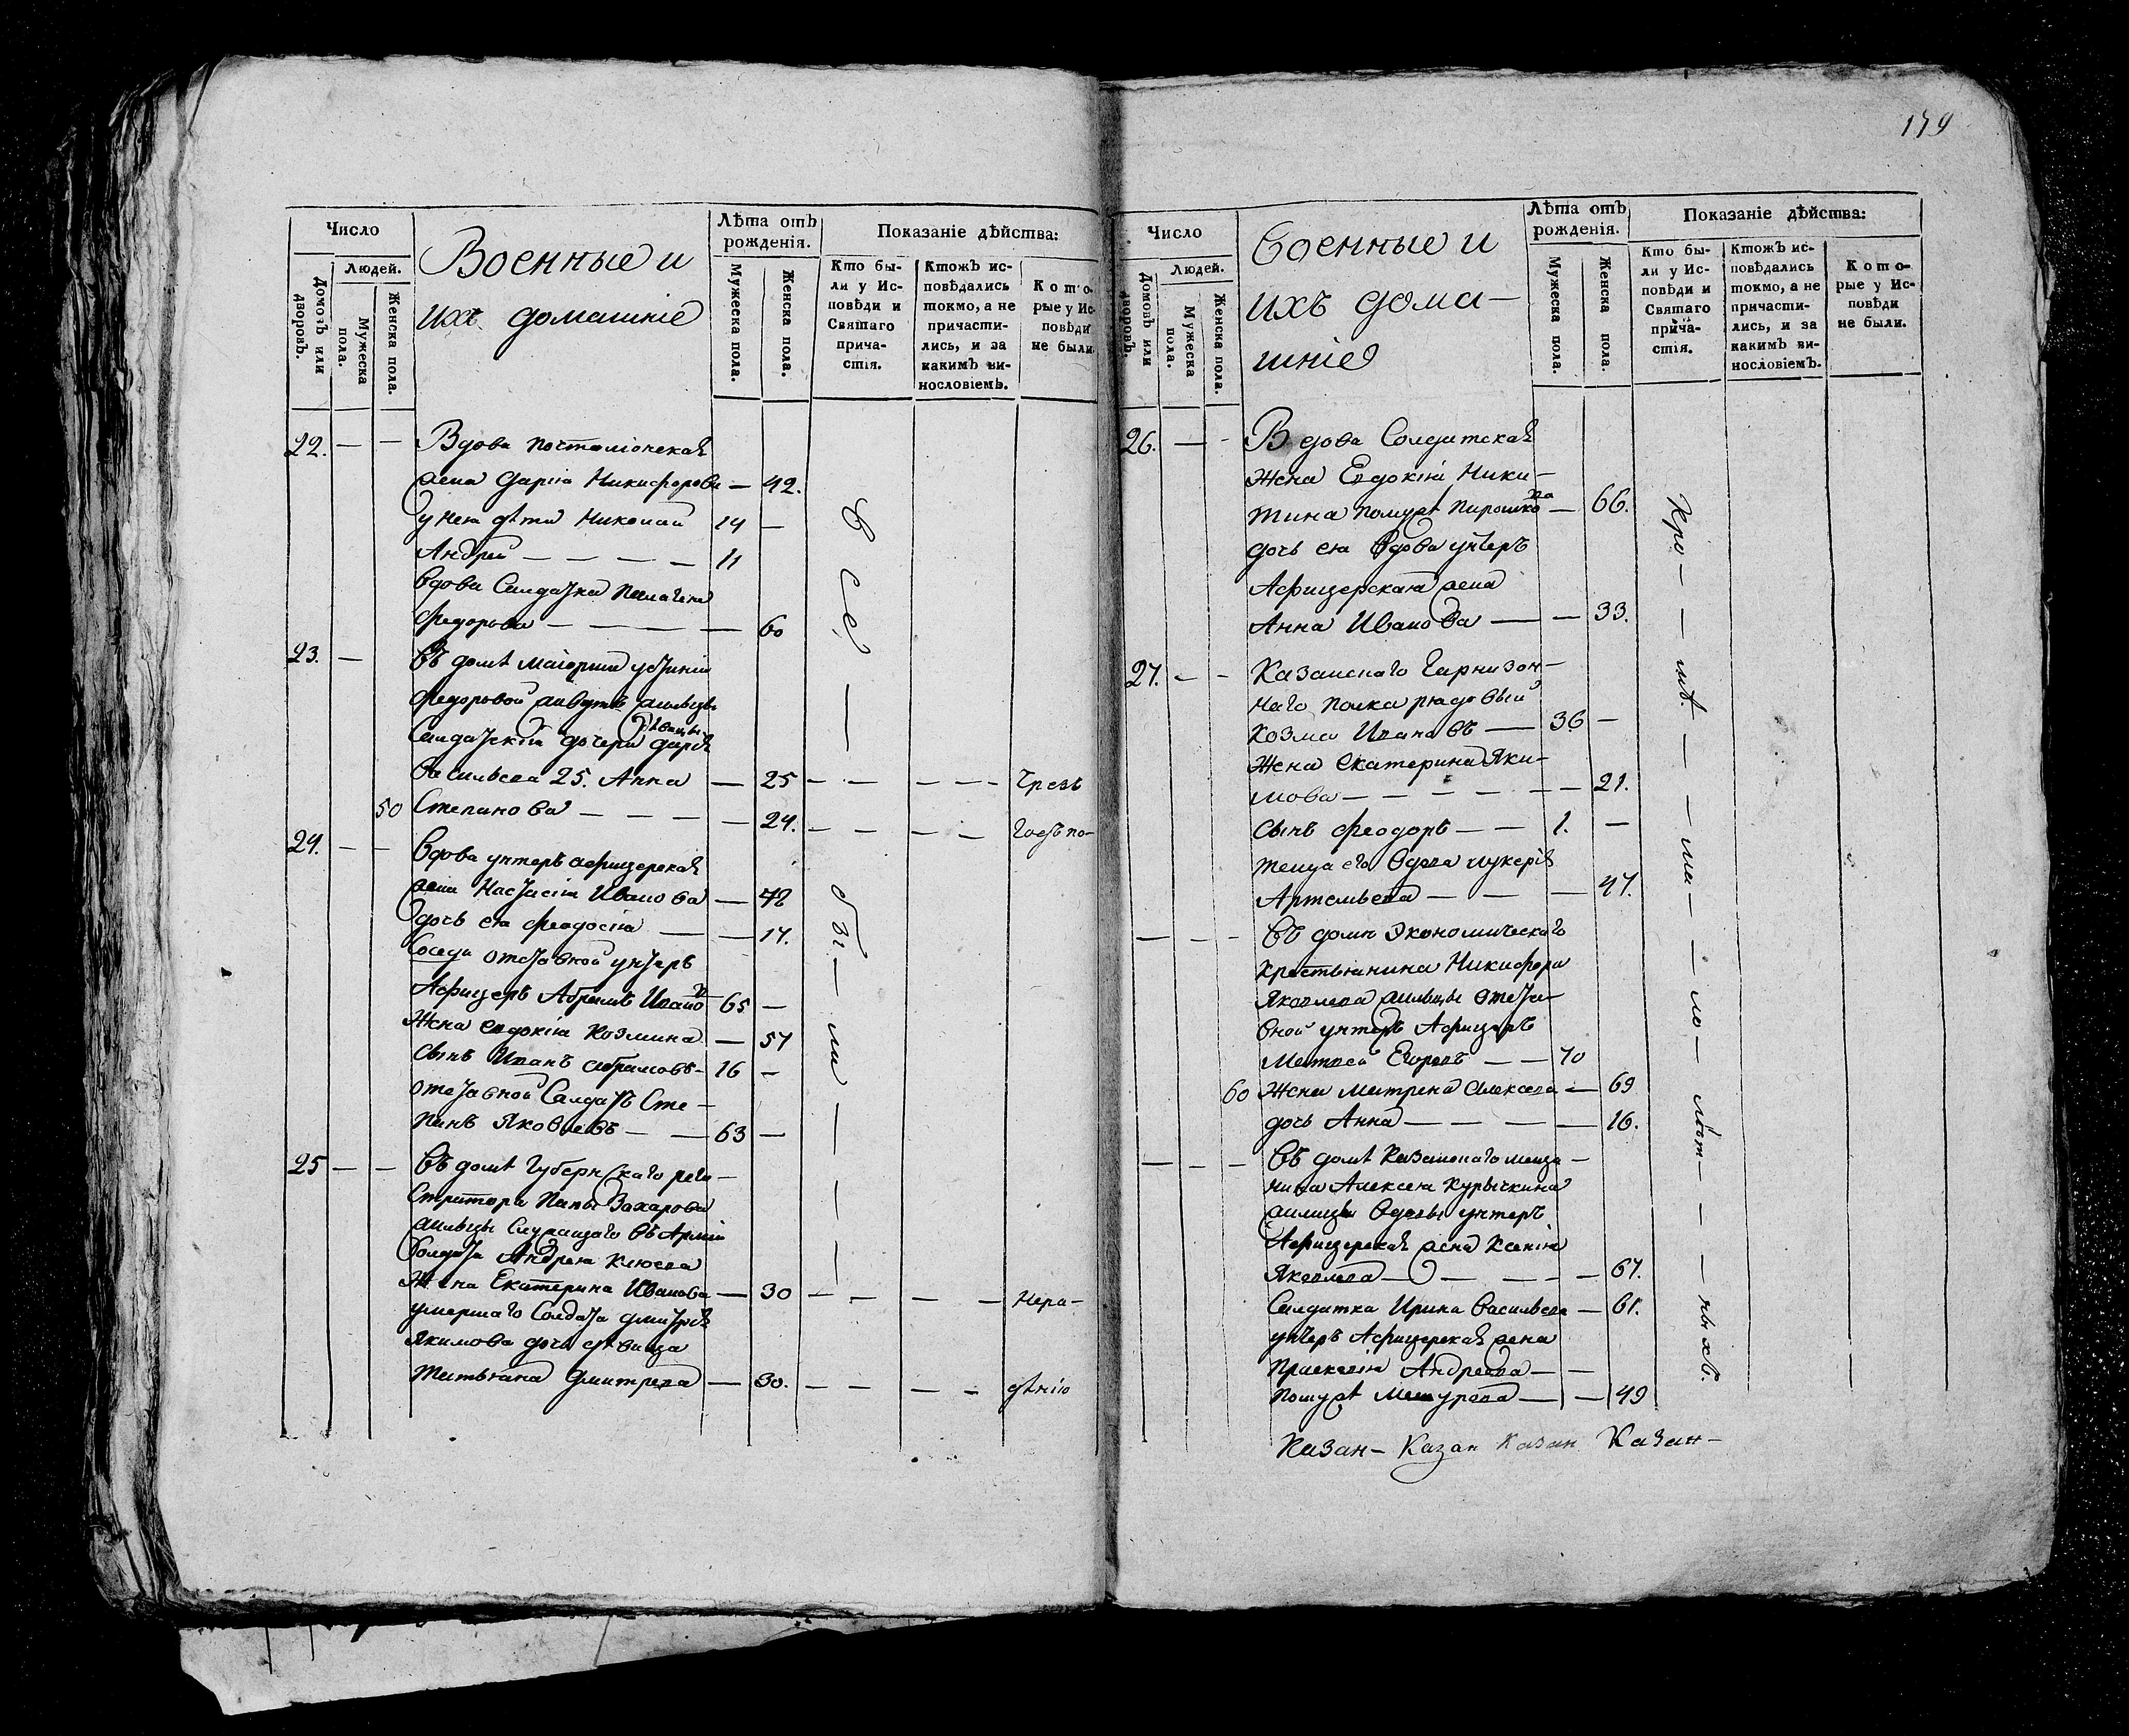 179
Число
Людей.
Домовъ или дворовъ.
Мужеска пола.
Женска пола.
Военные и
ихъ домашніе
Лѣта отъ
рожденія.
Мужеска пола.
Женска пола.
Показаніе дѣйства:
Кто бы-
ли у Ис-
повѣди и
Святаго
прича-
стія.
Ктожъ ис-
повѣдались
токмо, а не
причасти-
лись, и за
какимъ ви-
нословіемъ.
Кото-
рые у Ис-
повѣди
не были.
22. — — Вдова почталіонская
жена Дарія Никифорова — 42.
у нея дѣти Николай 14 —
Андрей — — — — 11
вдова Салдатка Пелагея
Федорова — — — — 60
23. — Въ домѣ маіорши Устиніи
Федоровой живутъ жильцы
Салдатскія дочери дѣвицы Дарія
Васильева 25. Анна — 25 — — — — Чрезъ
50 Степанова — — — — 24. — — — — Госпо-
24. — — Вдова унтеръ афицерская
жена Настасія Иванова — 42
дочь ея Феодосія — — 17.
Соседи отставной унтеръ
Афицеръ Абрамъ Ивановъ 65 —
Жена Евдокія Козмина — 57
сынъ Иванъ Абрамовъ — 16 —
отставной Салдатъ Сте-
панъ Яковлевъ — — 63 —
25 — — Въ домѣ Губернскаго реги-
стратора Захарова
жильцы Служащаго въ Арміи
Солдата Андрея Клюева
Жена Екатерина Иванова — 30 — — — — Нера-
умершаго Солдата Дмитрія
Якимова дочь дѣвица
Татьяна Дмитрева — 30. — — — — дѣнію
Все — — бы — ли — — —
Число
Людей.
Домовъ или дворовъ.
Мужеска пола.
Женска пола.
Военные и
ихъ дома-
шніе
Лѣта отъ
рожденія.
Мужеска пола.
Женска пола.
Показаніе дѣйства:
Кто бы-
ли у Ис-
повѣди и
Святаго
прича-
стія.
Ктожъ ис-
повѣдались
токмо, а не
причасти-
лись, и за
какимъ ви-
нословіемъ.
Кото-
рые у Ис-
повѣди
не были.
26. — — Вдова Солдатская
Жена Евдокіи Ники-
тина помужѣ Пирошкова — 66.
дочь ея вдова унтеръ
Афицерская жена
Анна Иванова — — 33.
27. — — Казанскаго Гарнизон-
наго полка рядовый
Козма Ивановъ — 36 —
Жена Екатерина Яки-
мова — — — — — — 21.
сынъ Феодоръ — — 1. —
теща его вдова Лукерія
Артемьева — — — 47.
— — — Въ доме Экономическаго
крестьянина Никифора
Яковлева жильцы Отста-
вной унтеръ Афицеръ
Матвей Егоровъ — — 70
60 Жена Матрена Алексева — 69
дочь Анна — — — — 16.
— — — Въ домѣ Казанскаго меща-
нина Алексея Курычкина
жилицы вдовы унтеръ
Афицерская жена Ксенія
Яковлева — — — — — 67.
Салдатка Ирина Васильева — 61.
унтеръ Афицерская жена
Прасковія Андреева — —
помужѣ — — 49
Кро — — мѣ. — — ма — — ло — лѣт — — — ныхъ.
Казан- Казан Казан Казан-